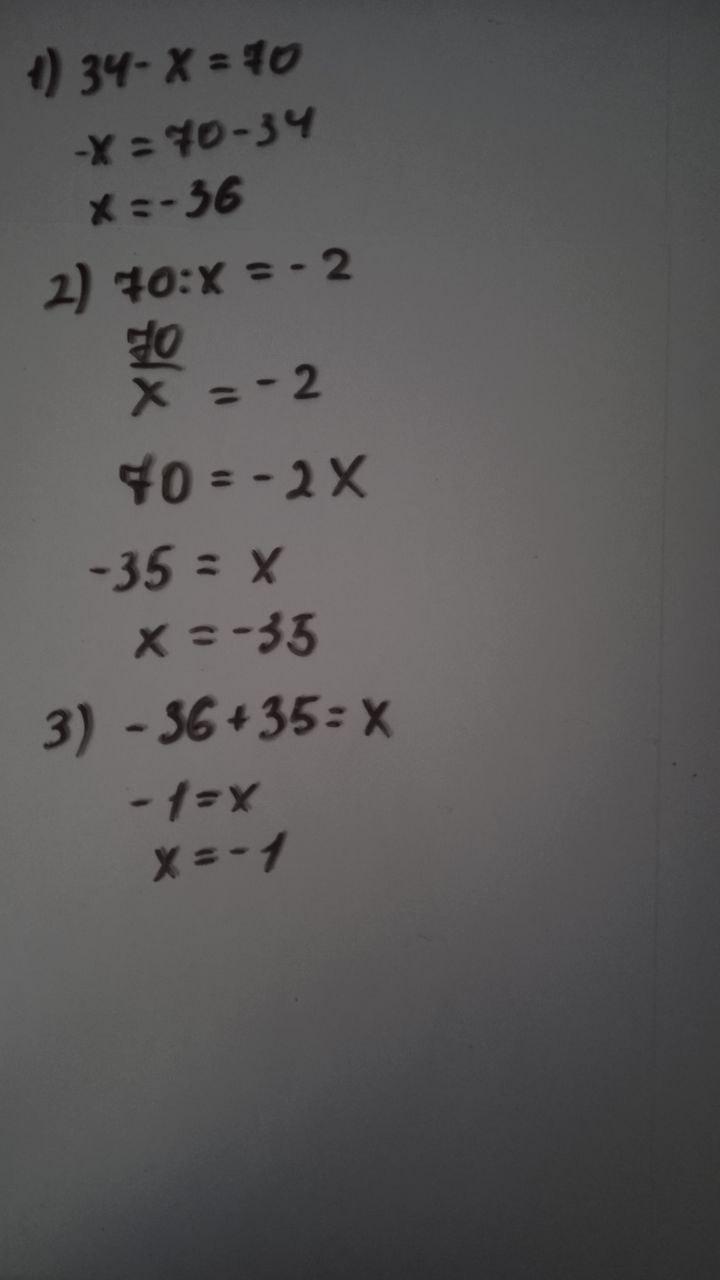 1) 34 - x = 70
-x = 70 - 34
x = - 36
2) 70 : x = - 2
70
x = - 2
70 = - 2x
-35 = x
x = -35
3) - 36 + 35 = x
- 1 = x
x = - 1